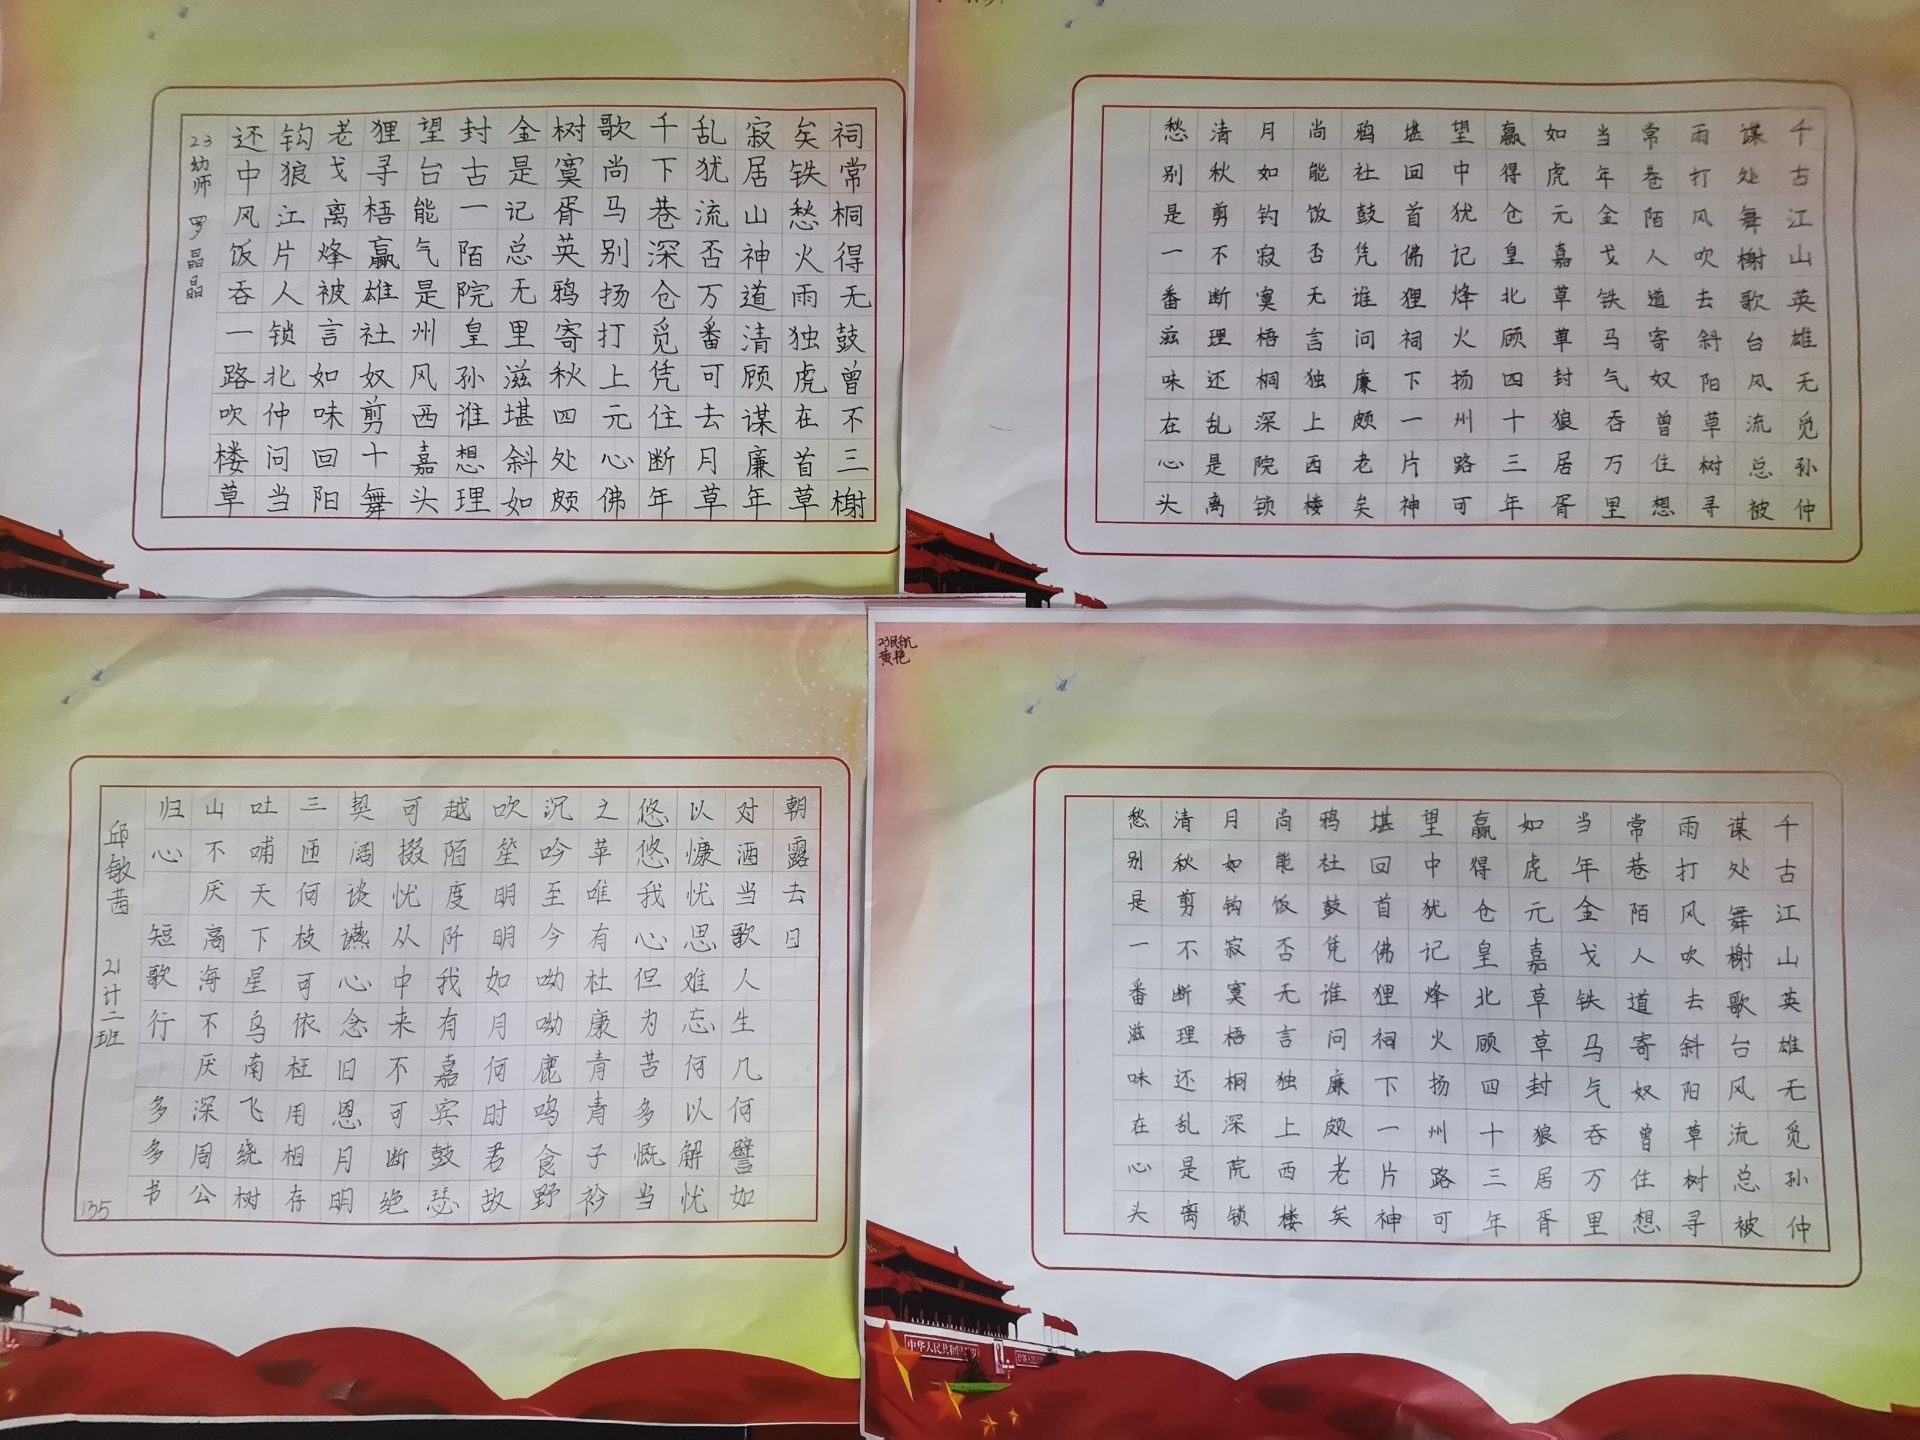 祠常桐得无鼓曾不三榭
矣铁愁火雨独虎在首草
寂居山神道清顾谋廉年
乱犹流否万番可去月草
千下巷深仓觅凭住断年
歌尚马别扬打上元心佛
树寞胥英鸦寄秋四处颇
金是记总无里滋堪斜如
封古一陌院皇孙谁想理
望台能气是州风西嘉头
狸寻梧赢雄社奴剪十舞
老戈离烽被言如味回阳
钩狼江片人锁北仲问当
还中风饭吞一路吹楼草
23幼师 罗晶晶
千古江山英雄无觅孙仲
谋处舞榭歌台风流总被
雨打风吹去斜阳草树寻
常巷陌人道寄奴曾住想
当年金戈铁马气吞万里
如虎元嘉草草封狼居胥
赢得仓皇北顾四十三年
望中犹记烽火扬州路可
堪回首佛狸祠下一片神
鸦社鼓凭谁问廉颇老矣
尚能饭否无言独上西楼
月如钓寂寞梧桐深院锁
清秋剪不断理还乱是离
愁别是一番滋味在心头
朝露去日
对酒当歌人生几何譬如
以慷忧思难忘何以解忧
悠悠我心但为苦多慨当
之苹唯有杜康青青子衿
沉吟至今呦呦鹿鸣食野
吹笙明明如月何时君故
越陌度阡我有嘉宾鼓瑟
可掇忧从中来不可断绝
契阔谈讌心念旧恩月明
三匝何枝可依枉用相存
吐哺天下星乌南飞绕树
山不厌高海不厌深周公
归心 短歌行 多多书
邱敏茜 21计二班
135
23民航
黄艳
千古江山英雄无觅孙仲
谋处舞榭歌台风流总被
雨打风吹去斜阳草树寻
常巷陌人道寄奴曾住想
当年金戈铁马气吞万里
如虎元嘉草草封狼居胥
赢得仓皇北顾四十三年
望中犹记烽火扬州路可
堪回首佛狸祠下一片神
鸦社鼓凭谁问廉颇老矣
尚能饭否无言独上西楼
月如钩寂寞梧桐深院锁
清秋剪不断理还乱是离
愁别是一番滋味在心头